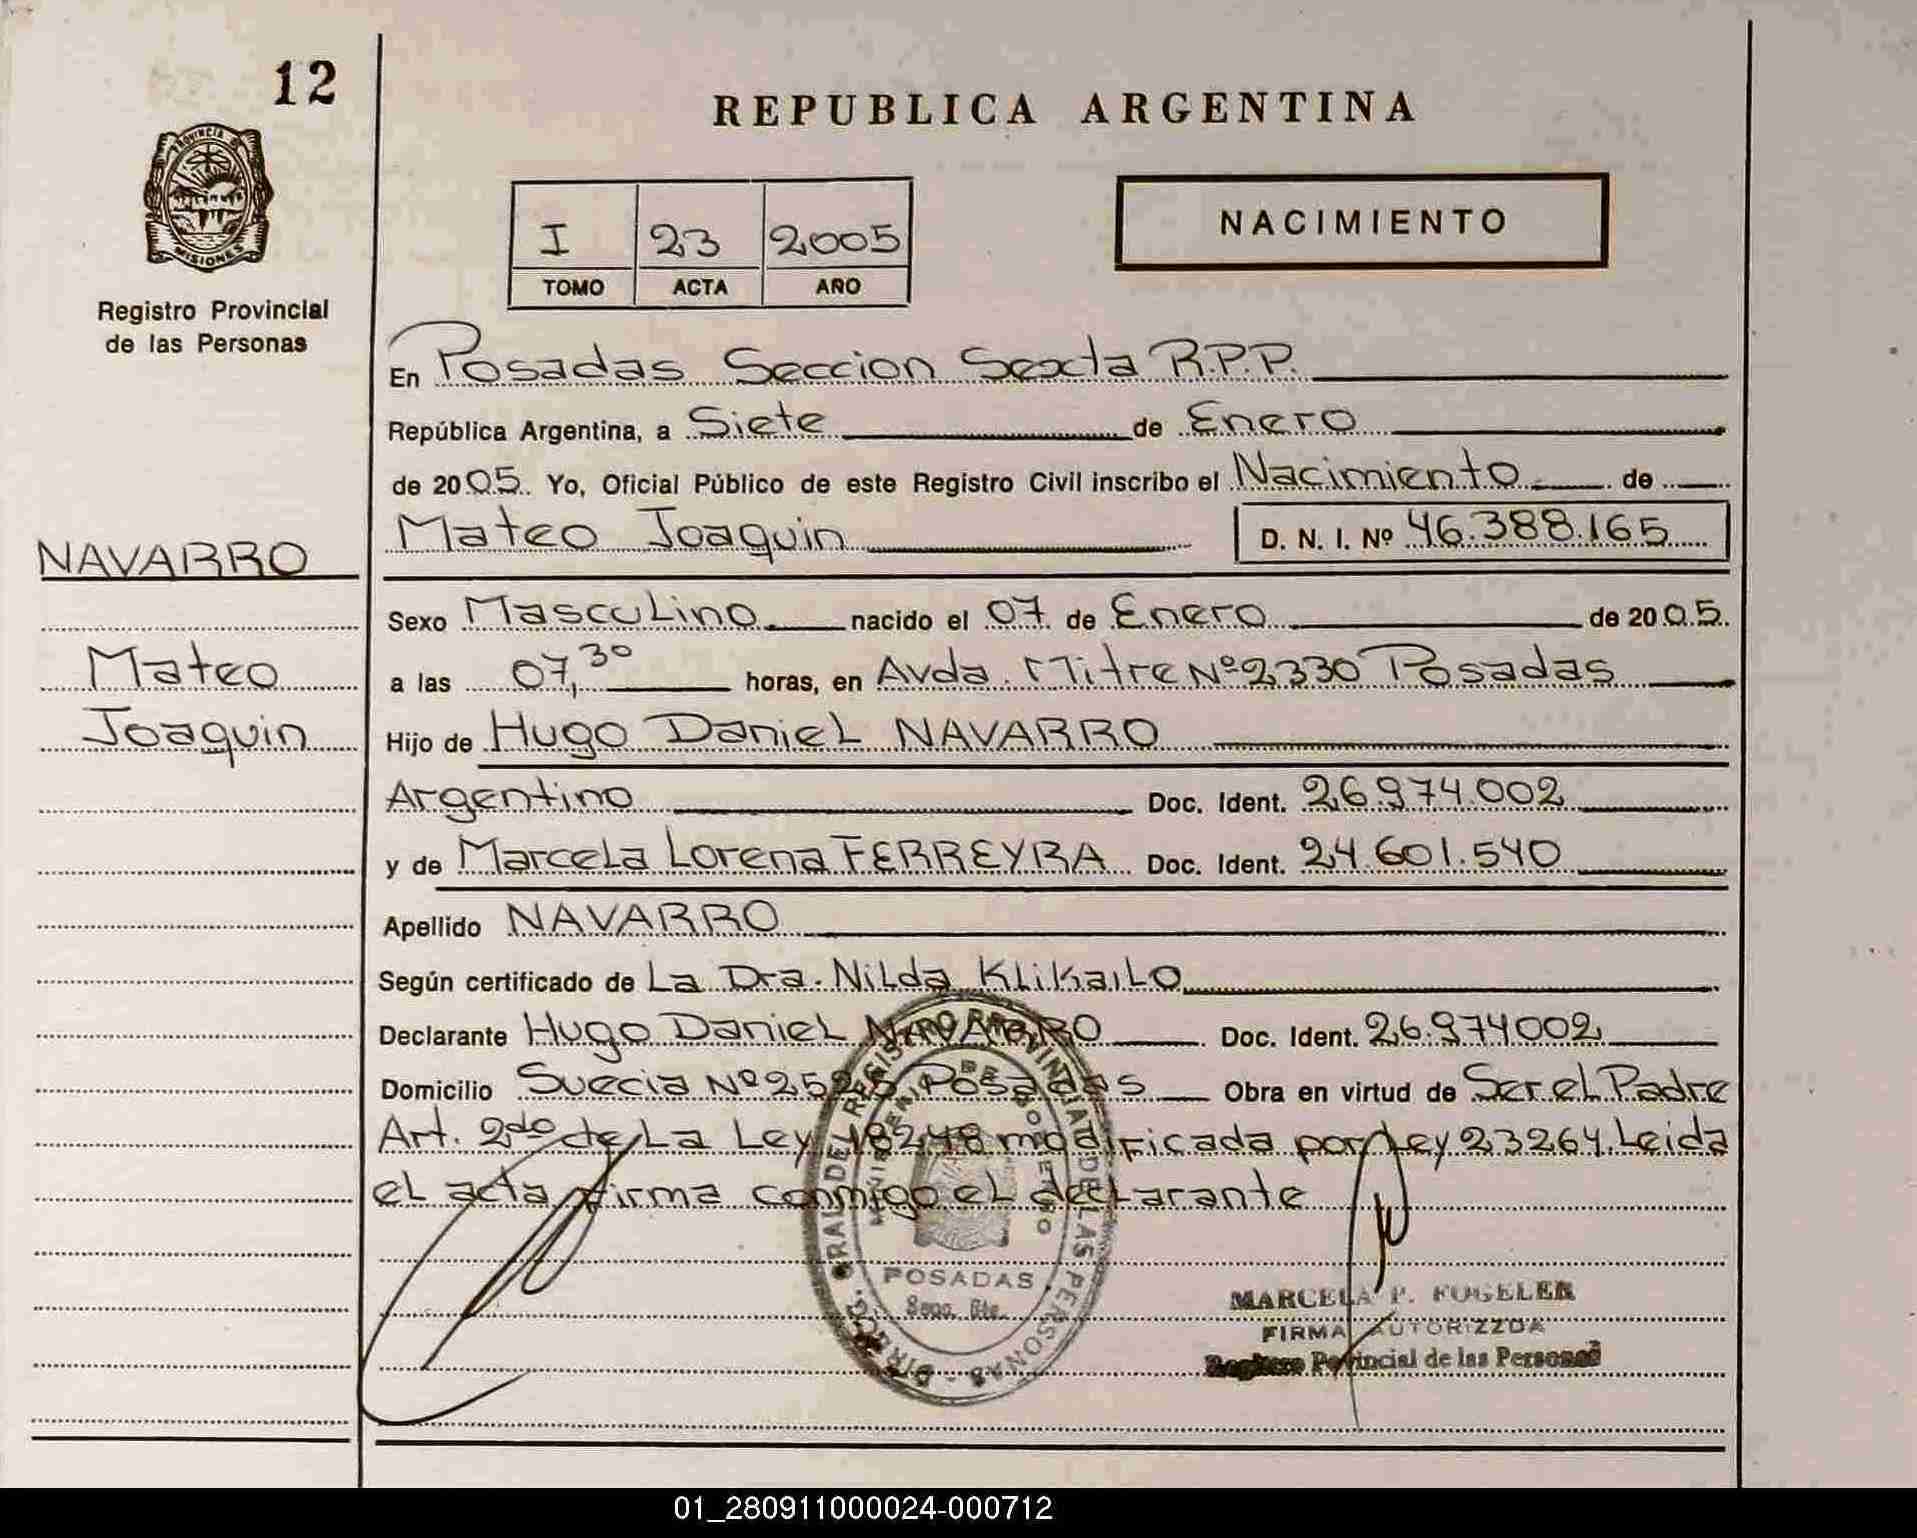 12
PROVINCIA DE
MISIONES
Registro Provincial
de las Personas
NAVARRO
Mateo
Joaquin
REPUBLICA ARGENTINA
I 23 2005
TOMO ACTA AÑO
NACIMIENTO
En Posadas Seccion Sexta R.P.P.
República Argentina, a Siete de Enero
de 2005. Yo, Oficial Público de este Registro Civil inscribo el Nacimiento de
Mateo Joaquin D. N. I. Nº 46.388.165
Sexo Masculino nacido el 07 de Enero de 2005.
a las 07,30 horas, en Avda. Mitre Nº 2330 Posadas
Hijo de Hugo Daniel NAVARRO
Argentino Doc. Ident. 26.974.002
y de Marcela Lorena FERREYRA Doc. Ident. 24.601.540
Apellido NAVARRO
Según certificado de La Dra. Nilda Klikailo
Declarante Hugo Daniel NAVARRO Doc. Ident. 26.974002
Domicilio Suecia Nº Posadas Obra en virtud de Ser el Padre
Art. 2do de La Ley 18248 modificada por Ley 23264. Leida
el acta firma conmigo el declarante
DIREC. GRAL. DEL REGISTRO PROVINCIAL DE LAS PERSONAS
MINISTERIO DE GOBIERNO
POSADAS
MARCELA P. FOGELER
FIRMA AUTORIZZDA
Registro Povincial de las Personas
01_280911000024-000712